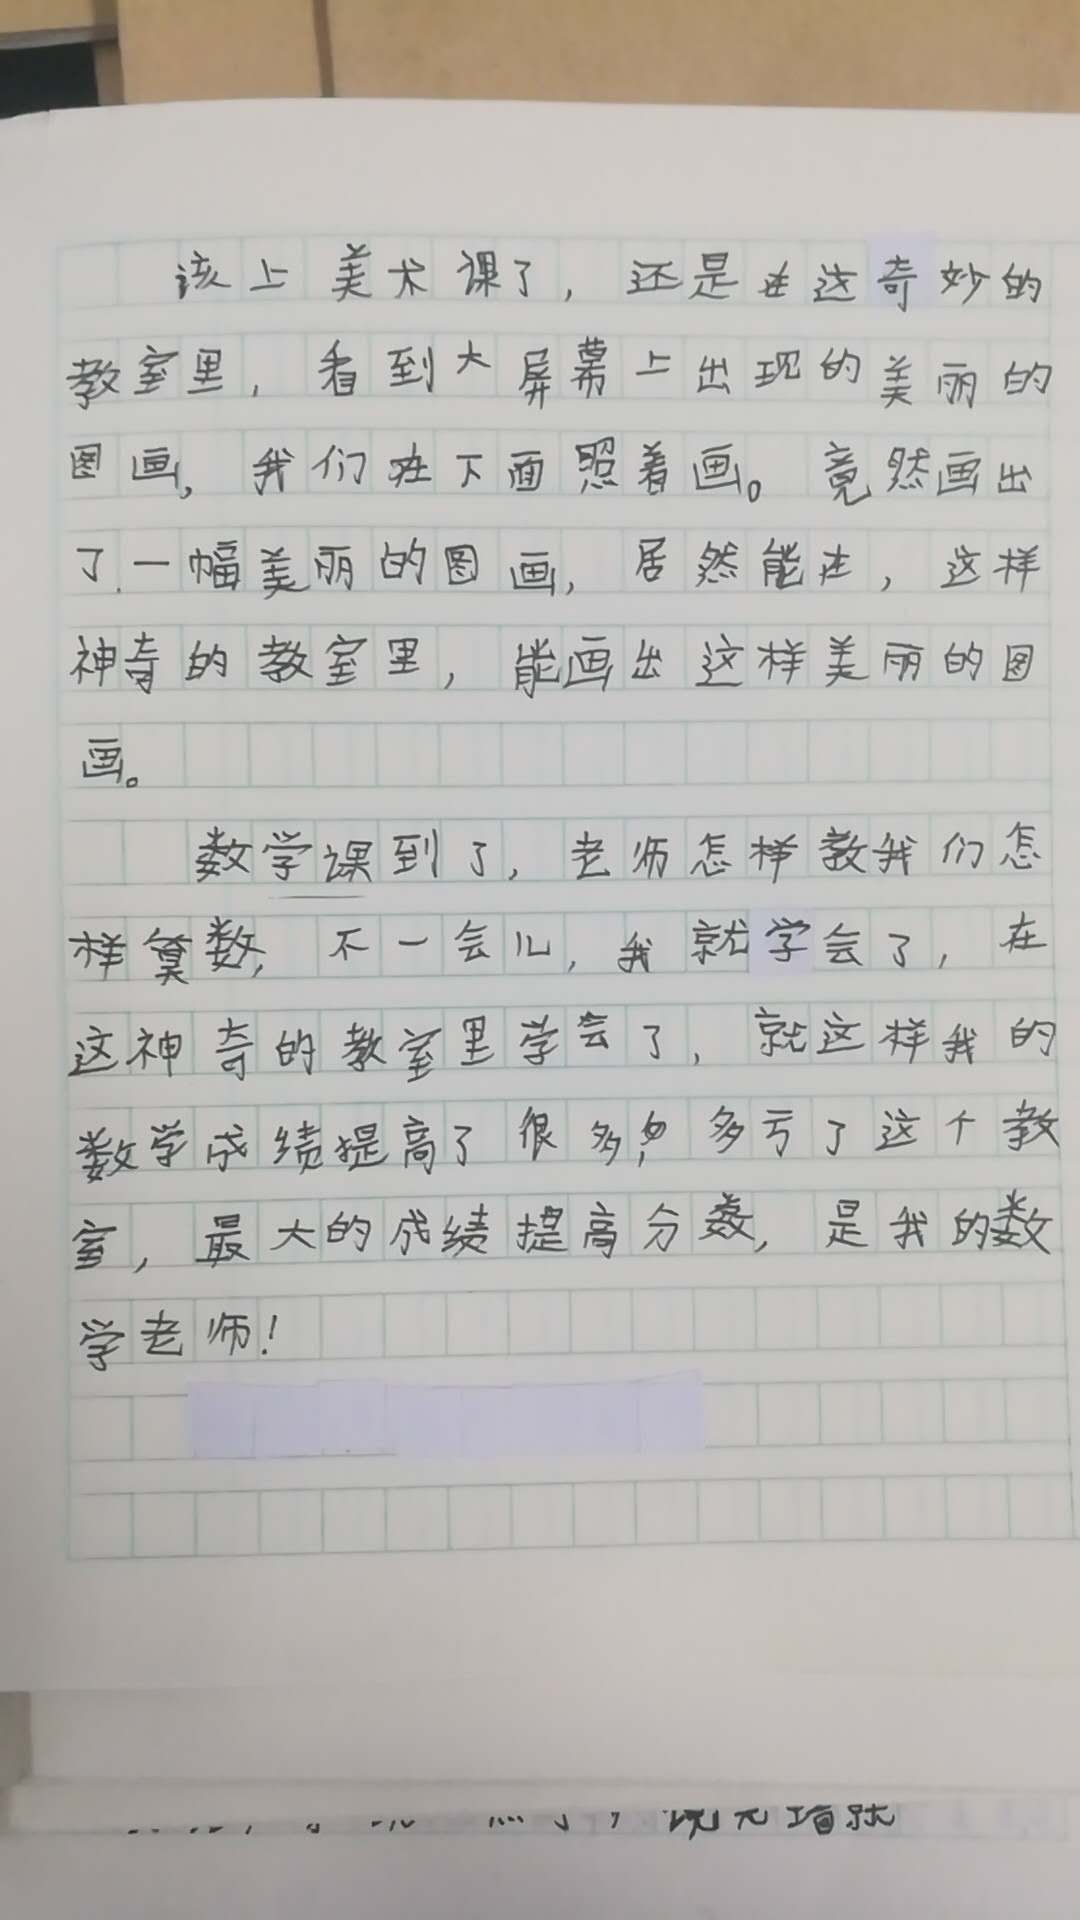 该上美术课了，还是在这奇妙的
教室里，看到大屏幕上出现的美丽的
图画，我们在下面照着画。竟然画出
了一幅美丽的图画，居然能在，这样
神奇的教室里，能画出这样美丽的图
画。
数学课到了，老师怎样教我们怎
样算数，不一会儿，我就学会了，在
这神奇的教室里学会了，就这样我的
数学成绩提高了很多，多亏了这个教
室，最大的成绩提高分数，是我的数
学老师！